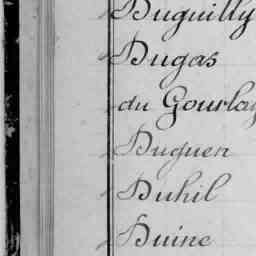 Duguilly
Dugas
du Gourlay
Duguen
Duhil
Duine